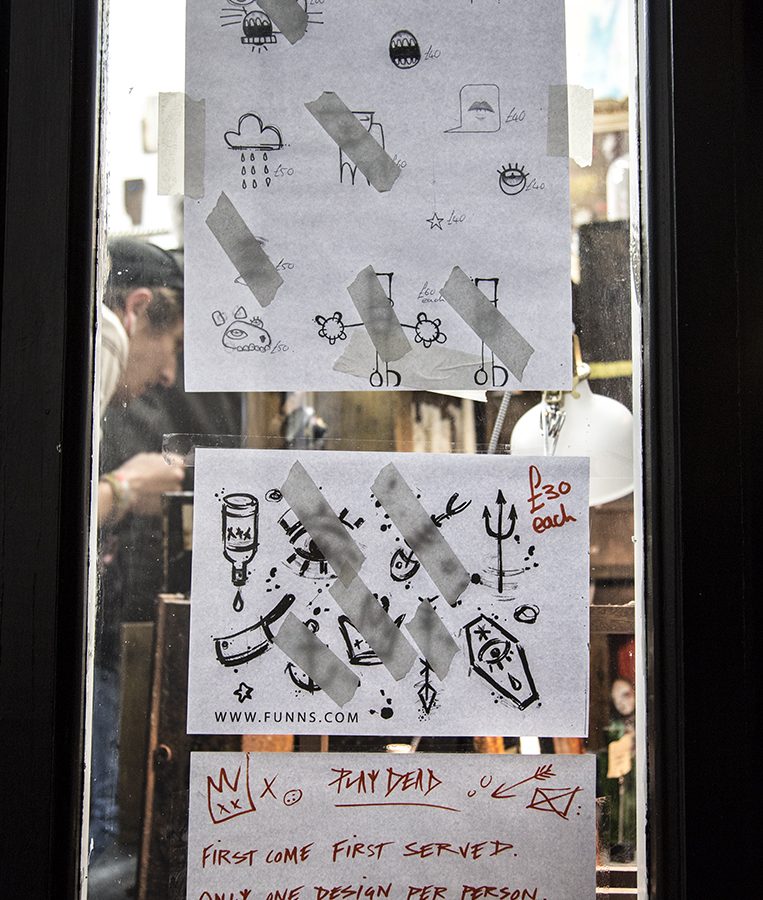 £40
£50
£40
£40
£40
£40
£50
£60
each
£50
£30
each
XXX
WWW.FUNNS.COM
PLAY DEAD
FIRST COME FIRST SERVED.
ONLY ONE DESIGN PER PERSON.